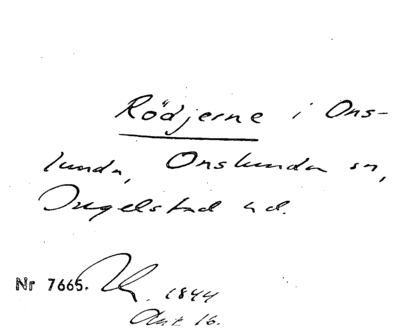 Rödjerne i Ons-
lunda, Onslunda sn,
Ingelstad hd.
Nr 7665. 1844
Akt 16.